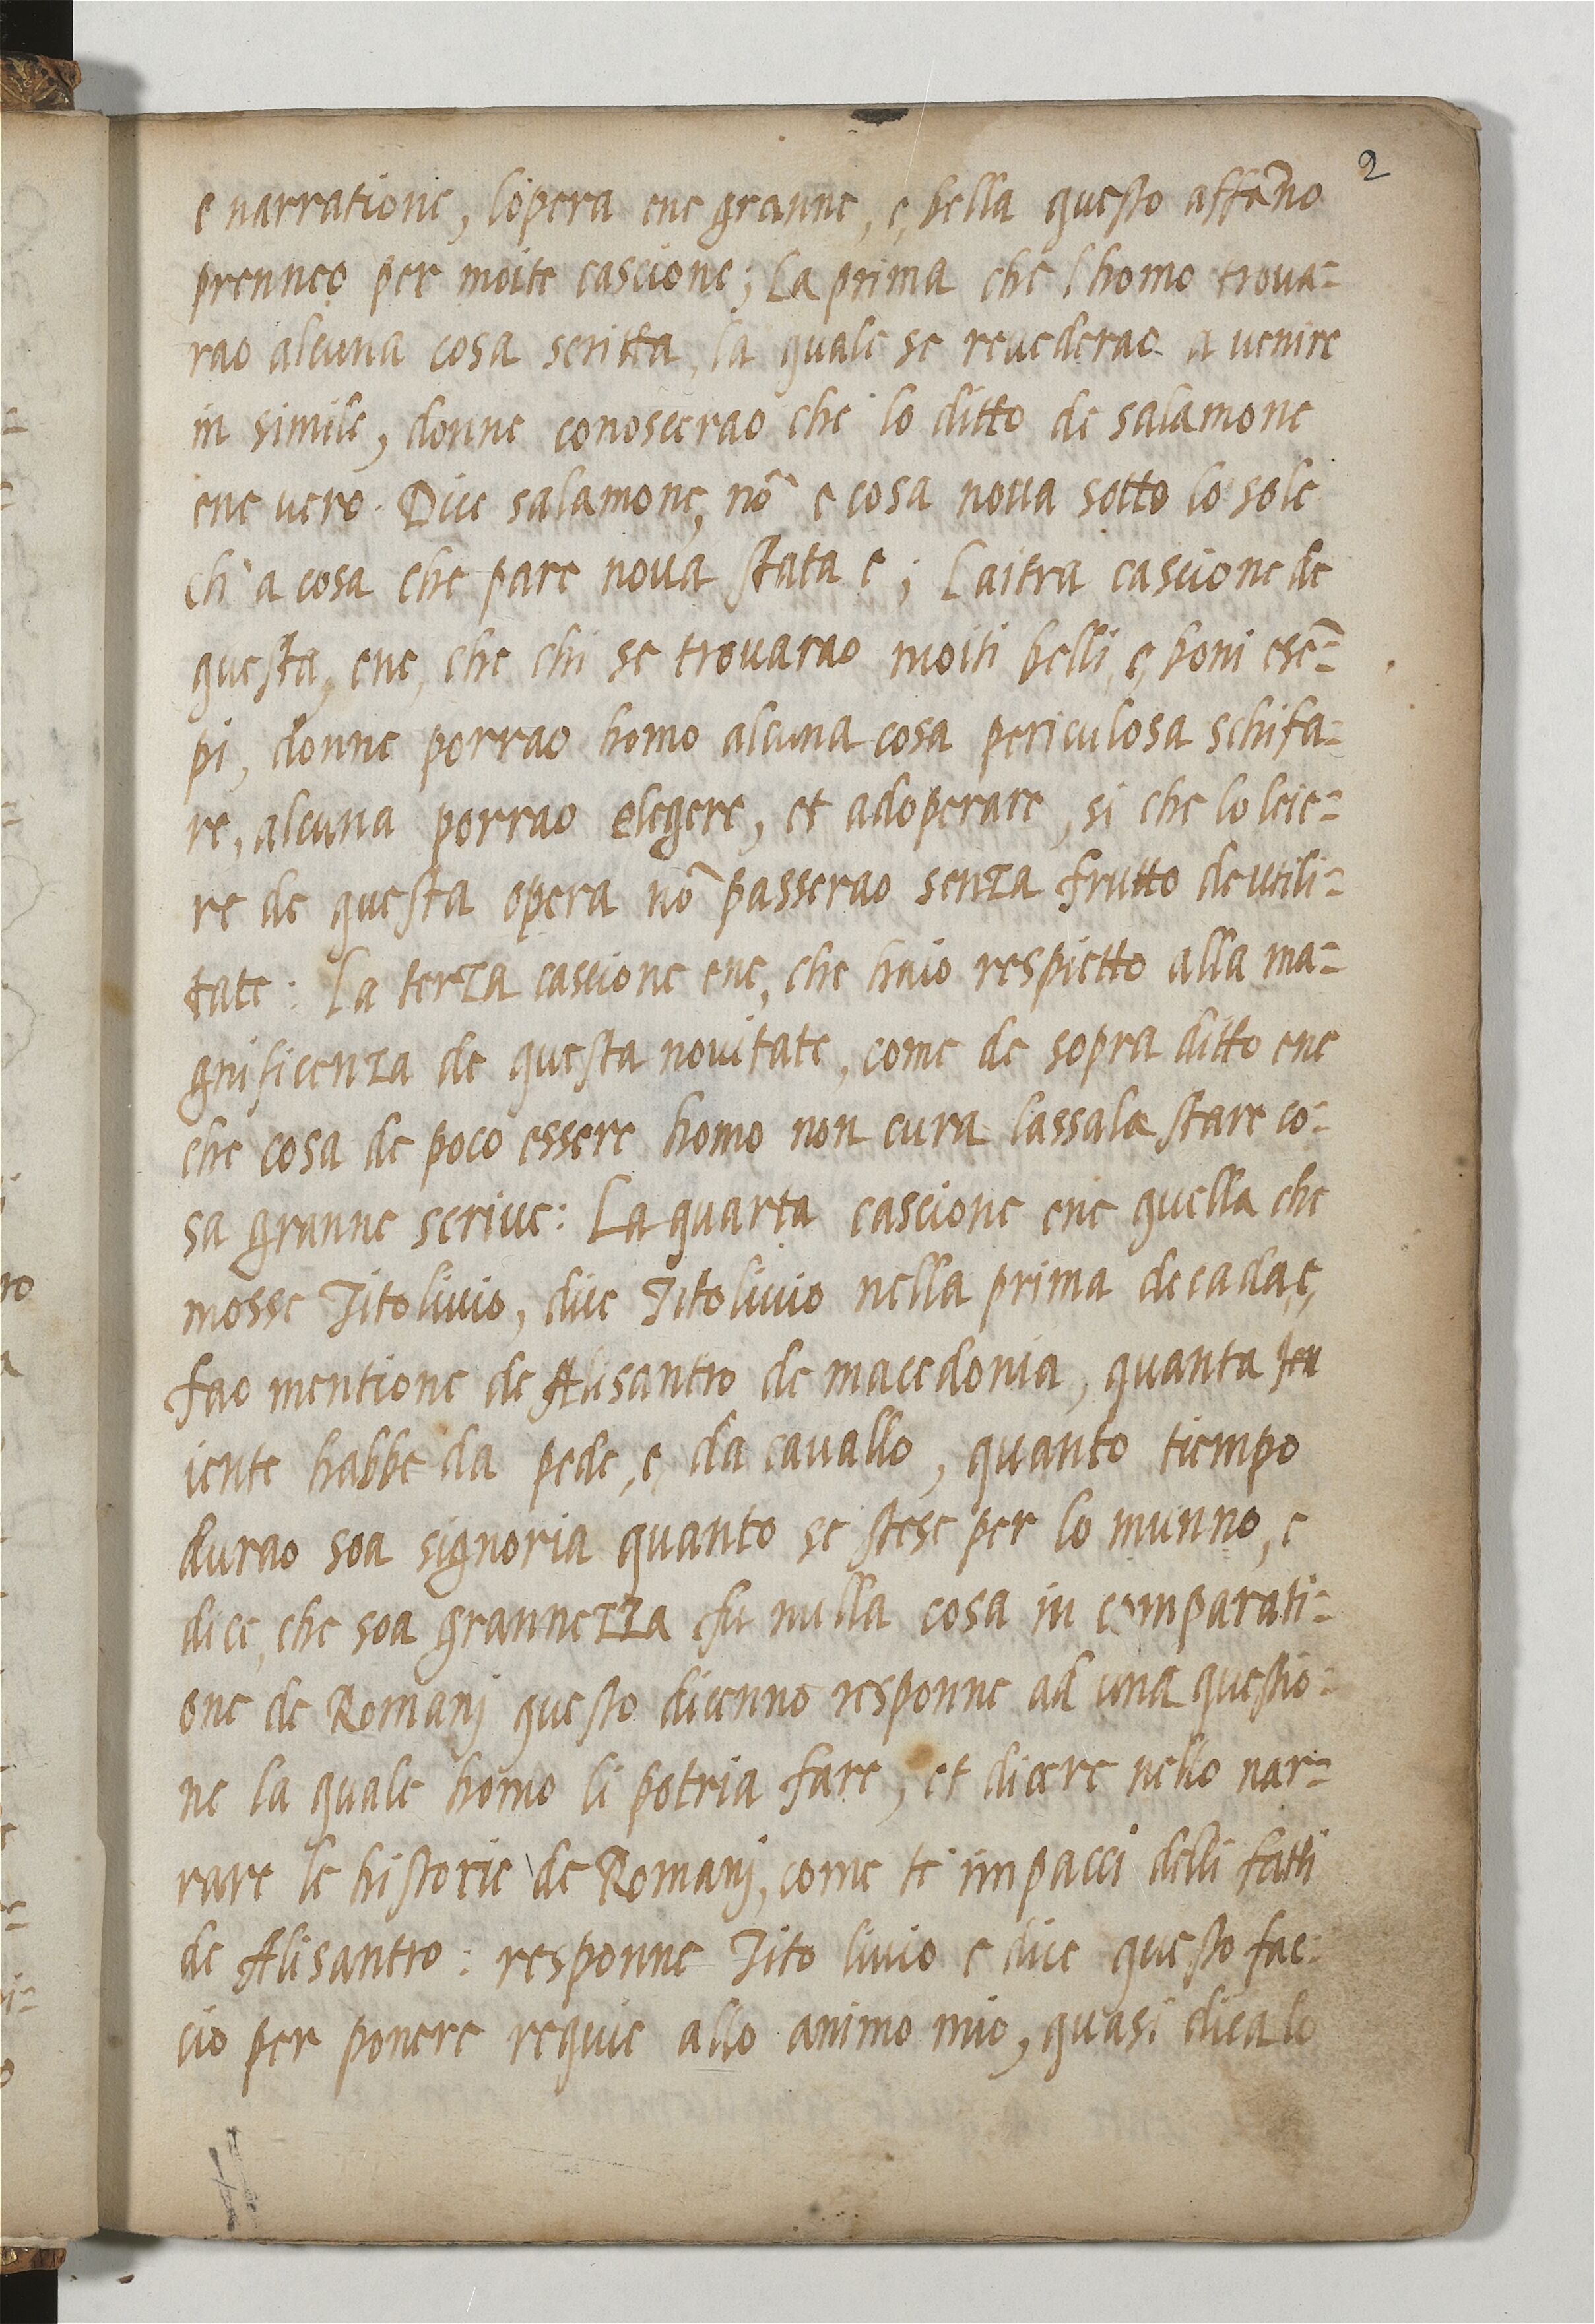 2
e narratione, l'opera ene granne, e, bella questo affãno
prenneo per moite cascione; La prima che l homo trova=
rao alcuna cosa scritta, la quale se revederao a venire
in simile, donne conoscerao che lo ditto de salamone
ene vero. Dice salamone, nõ e cosa nova sotto lo sole
ch' a cosa che pare nova stata e; Laitra cascione de
questa, ene, che chi se trovarao moiti belli, e, boni esẽ=
pi, donne porrao homo alcuna cosa periculosa schifa=
re, alcuna porrao elegere, et adoperare, si che lo leie=
re de questa opera nõ passerao senza frutto de utili=
tate: La terza cascione ene, che haio respietto alla ma=
gnificenza de questa novitate, come de sopra ditto ene
che cosa de poco essere homo non cura lassala stare co=
sa granne scrive: La quarta cascione ene quella che
mosse Tito livio, dice Tito livio nella prima decada, e,
fao mentione de Alisantro de macedonia, quanta
iente habbe da pede, e, da cavallo, quanto tiempo
durao soa signoria quanto se stese per lo munno, e
dice, che soa grannezza fu nulla cosa in comparati=
one de Romanj questo dicenno responne ad una questio=
ne la quale homo li potria fare, et dicere nello nar=
rare le historie de Romanj, come te impacci delli fatti
de Alisantro: responne Tito livio e dice questo fac=
cio per ponere requie allo animo mio, quasi dica lo